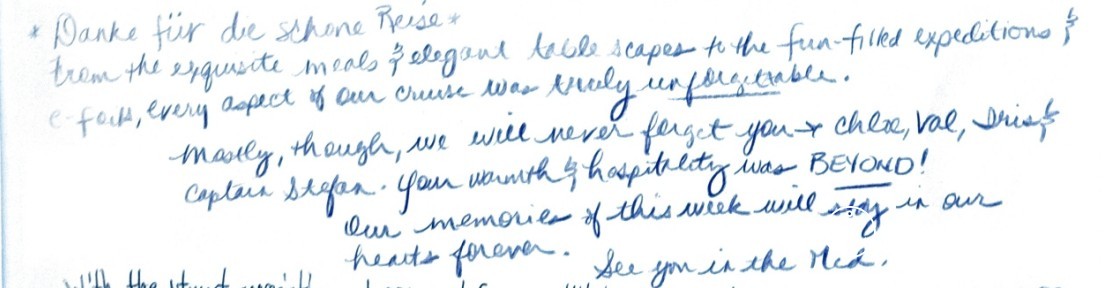 * Danke für die schöne Reise *
From the exquisite meals & elegant table scapes to the fun-filled expeditions &
e-foils, every aspect of our cruise was truly unforgettable.
Mostly, though, we will never forget you → Chloe, Val, Dris &
Captain Stefan. Your warmth & hospitality was BEYOND!
Our memories of this week will stay in our
hearts forever.
See you in the Med.
With the